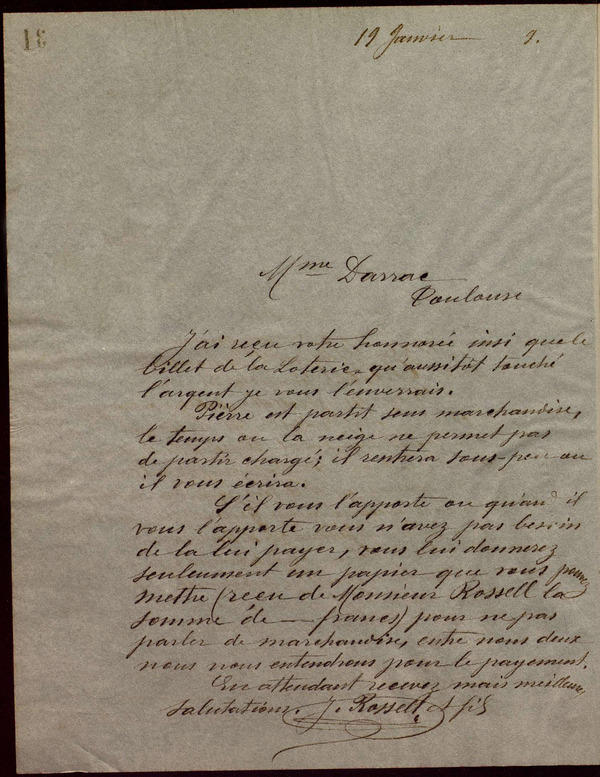 31
19 Janvier 9.
Mme Darrac
Toulouse
J'ai reçu votre honnorée insi que le
billet de la Loterie, qu'aussitôt touché
l'argent je vous l'énverrais.
Pièrre est partit sens marchandise,
le temps ou la neige ne permet pas
de partir chargé; il rentrera sous-peu ou
il vous écrira.
S'il vous l'apporte ou quand il
vous l'apporte vous n'avez pas besoin
de la lui payer, vous lui donnerez
seuleument un papier que vous pouvez
mettre (reçu de Monsieur Rossell la
somme de — francs) pour ne pas
parler de marchandise, entre nous deux
nous nous entendrons pour le payement.
En attendant recevez mais meilleures
salutations. J. Rossell & fils